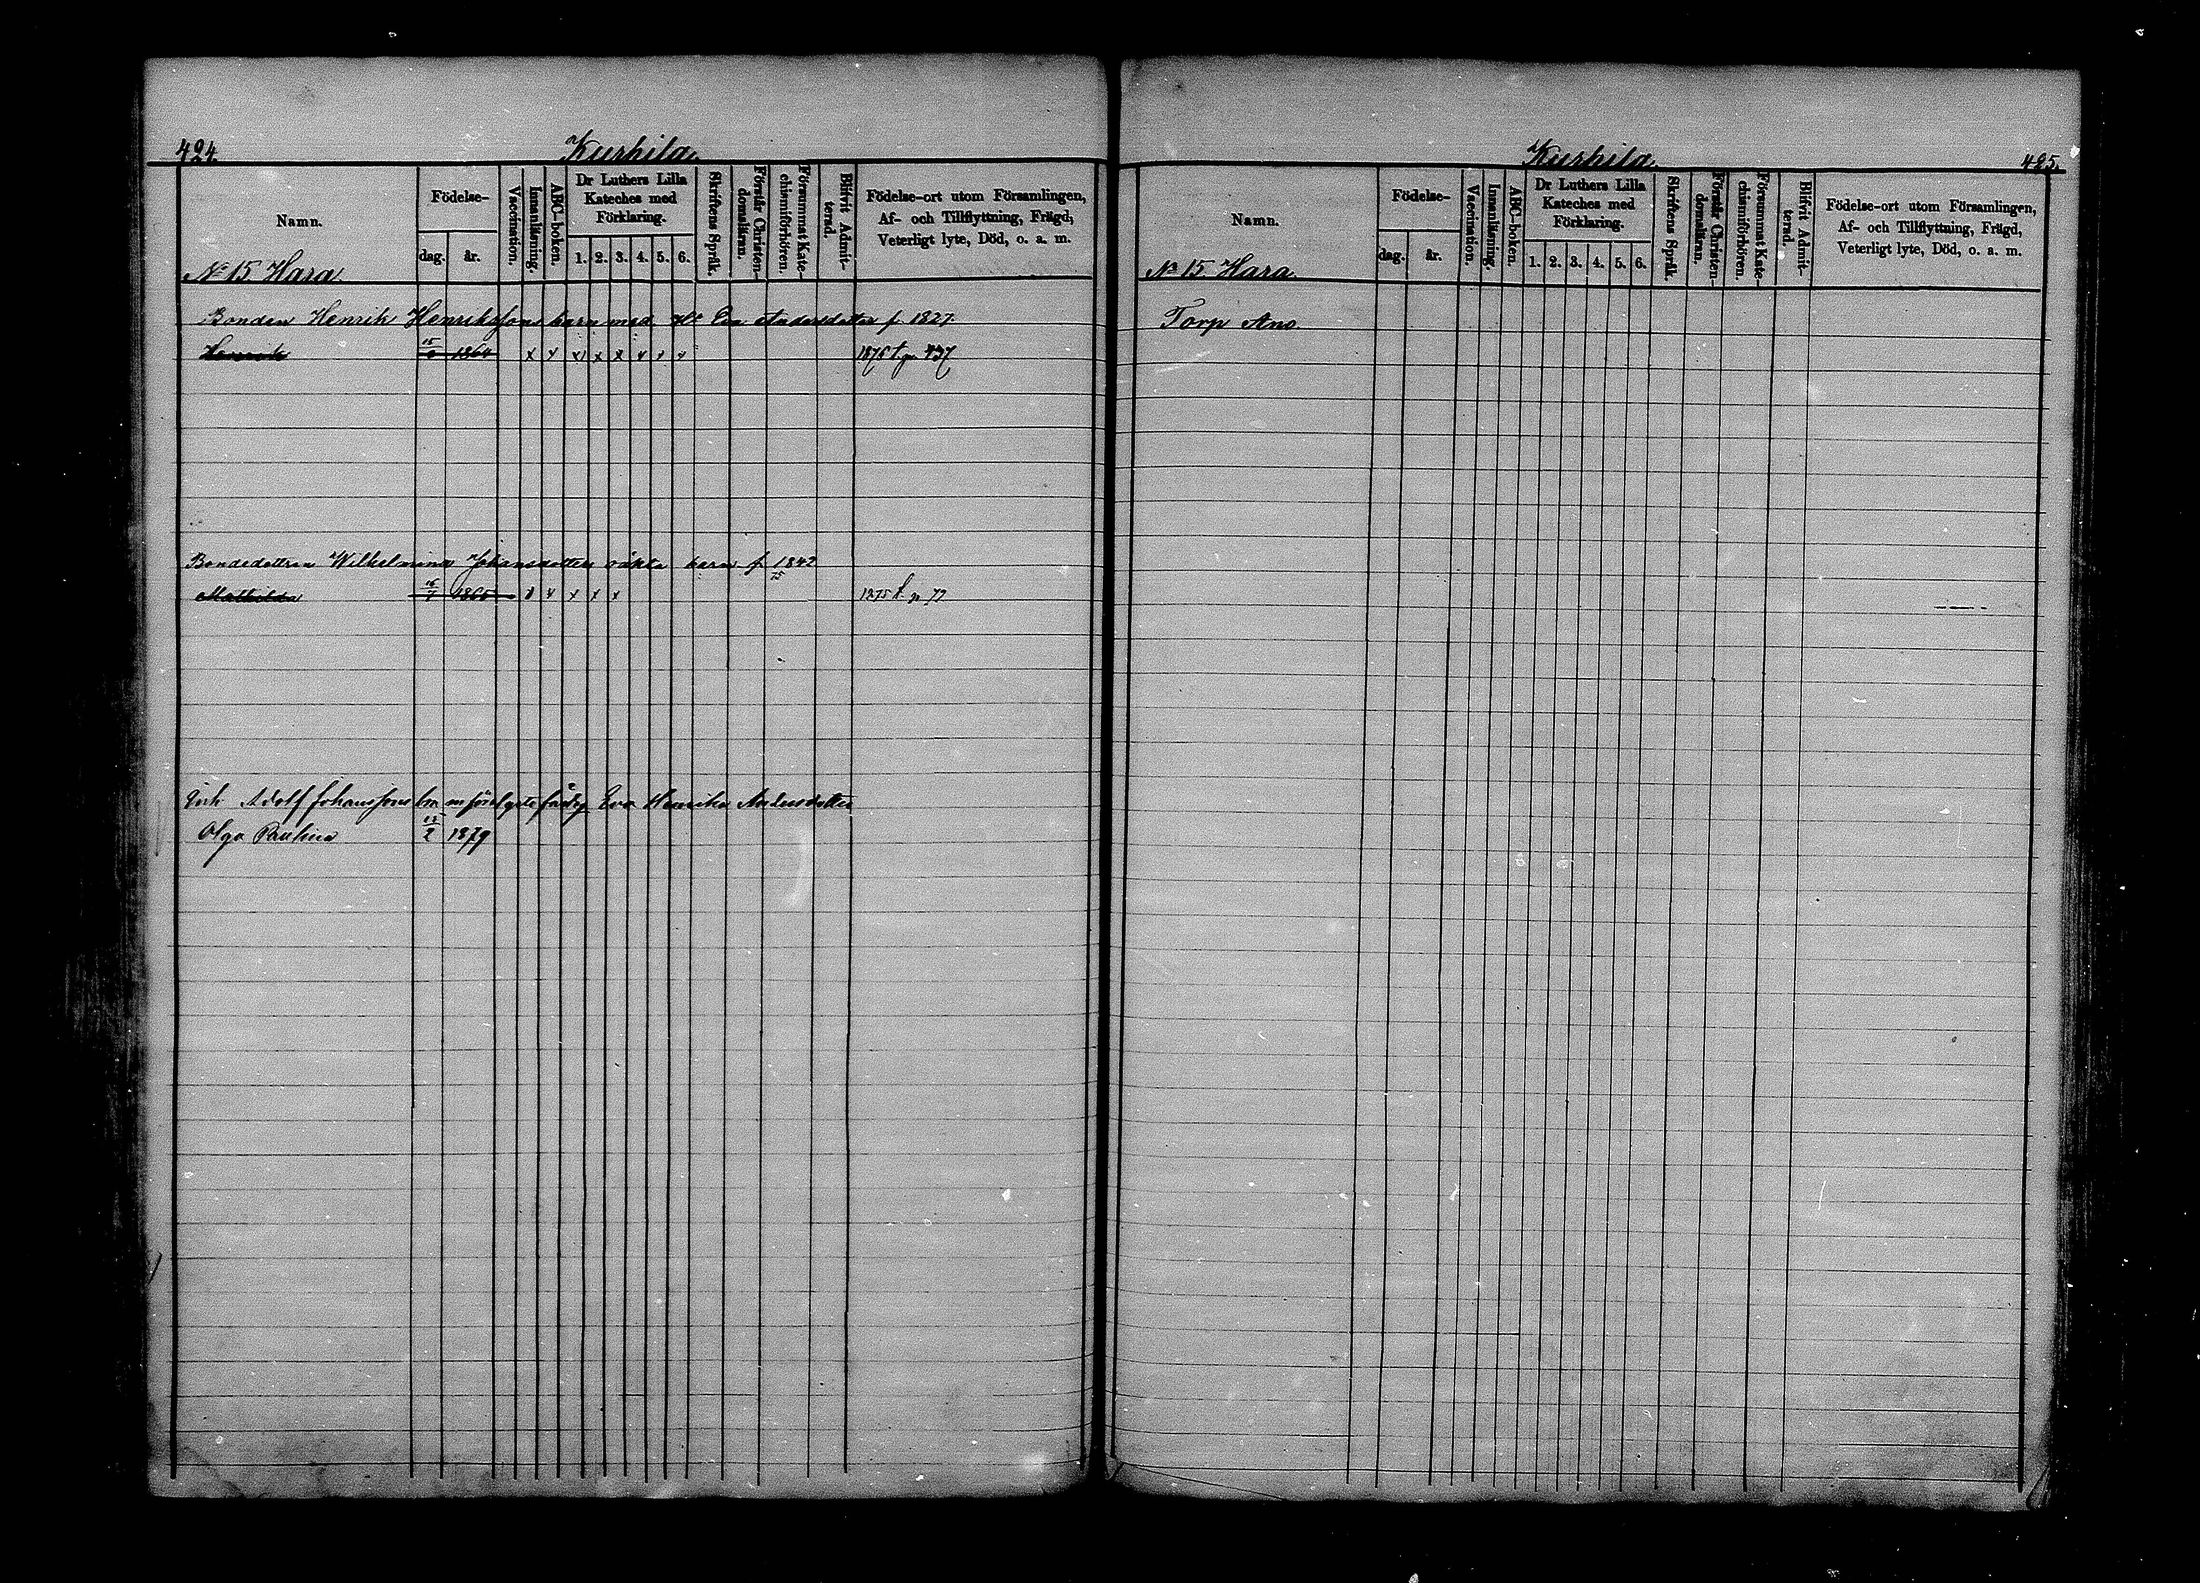 424.
Kurhila.
Namn.
Födelse-
dag.
år.
Vaccination.
Innanläsning.
ABC-boken.
Dr Luthers Lilla
Kateches med
Förklaring.
1. 2. 3. 4. 5. 6.
Skriftens Språk.
Förstår Christen-
domsläran.
Försummat Kate-
chismiförhören.
Blifvit Admit-
terad.
Födelse-ort utom Församlingen,
Af- och Tillflyttning, Frägd,
Veterligt lyte, Död, o. a. m.
No 15 Hara
Bonden Henrik Henrikssons barn med Eva Andersdotter f. 1827
Henrik 15 1864 x x x x x x x x 1876 437
Bondedottren Wilhelmina Johansdotters oäkta barn f 1842
Mathilda 16 x x x x 1875 77
Adolf Johanssons Eva Henrika Andersdotter
Olga Paulina 2 1879
Kurhila.
425.
Namn.
Födelse-
dag.
år.
Vaccination.
Innanläsning.
ABC-boken.
Dr Luthers Lilla
Kateches med
Förklaring.
1. 2. 3. 4. 5. 6.
Skriftens Språk.
Förstår Christen-
domsläran.
Försummat Kate-
chismiförhören.
Blifvit Admit-
terad.
Födelse-ort utom Församlingen,
Af- och Tillflyttning, Frägd,
Veterligt lyte, Död, o. a. m.
No 15 Hara
Torp Ano